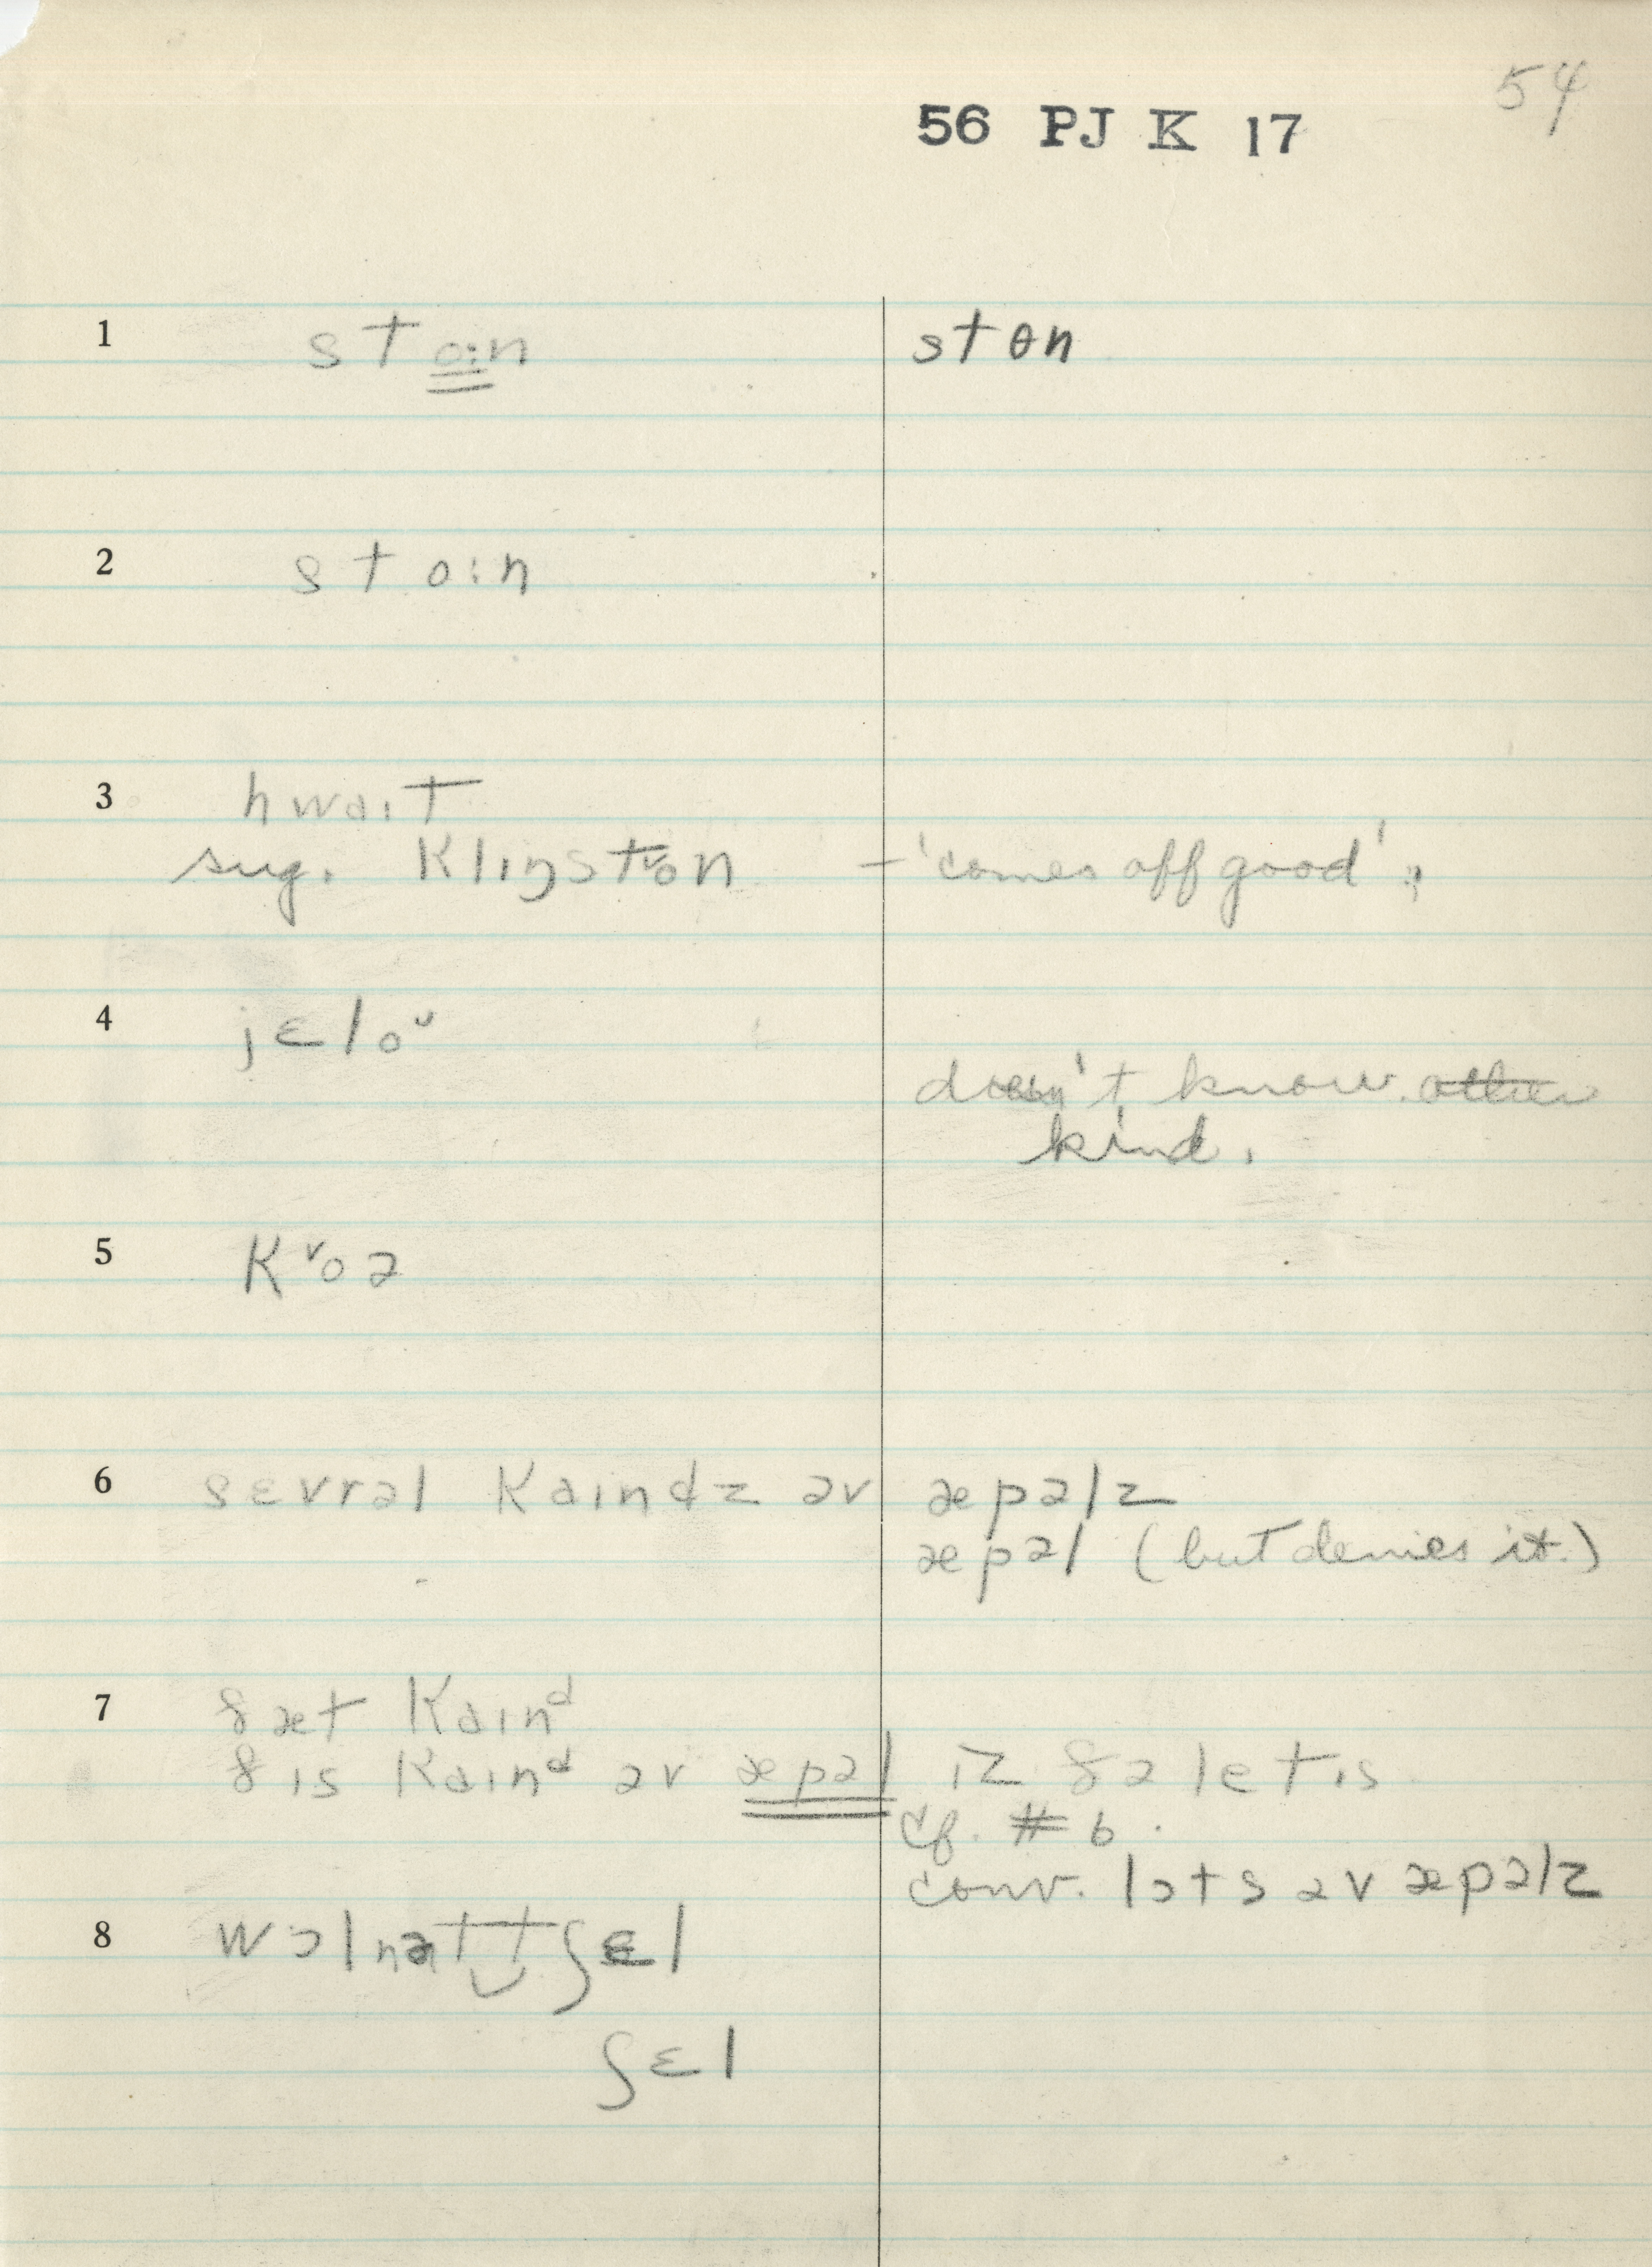 54
56 PJ K 17
1 sto:n stɵn
2 sto:n
3 hwaɪt
sug. klɪŋstᵛon – 'comes off good';
4 jɛloᵛ
doesn't know other
kind.
5 kᵛoə
6 sɛvrəl kaɪndz əv æpəlz
æpəl (but denies it.)
7 ðæt kaɪnᵈ
ðɪs kaɪnᵈ əv æpəl ɪz ðə letɪs
cf. #6.
conv. lɔts əv æpəlz
8 wɔlnət‿tʃɛl
ʃɛl